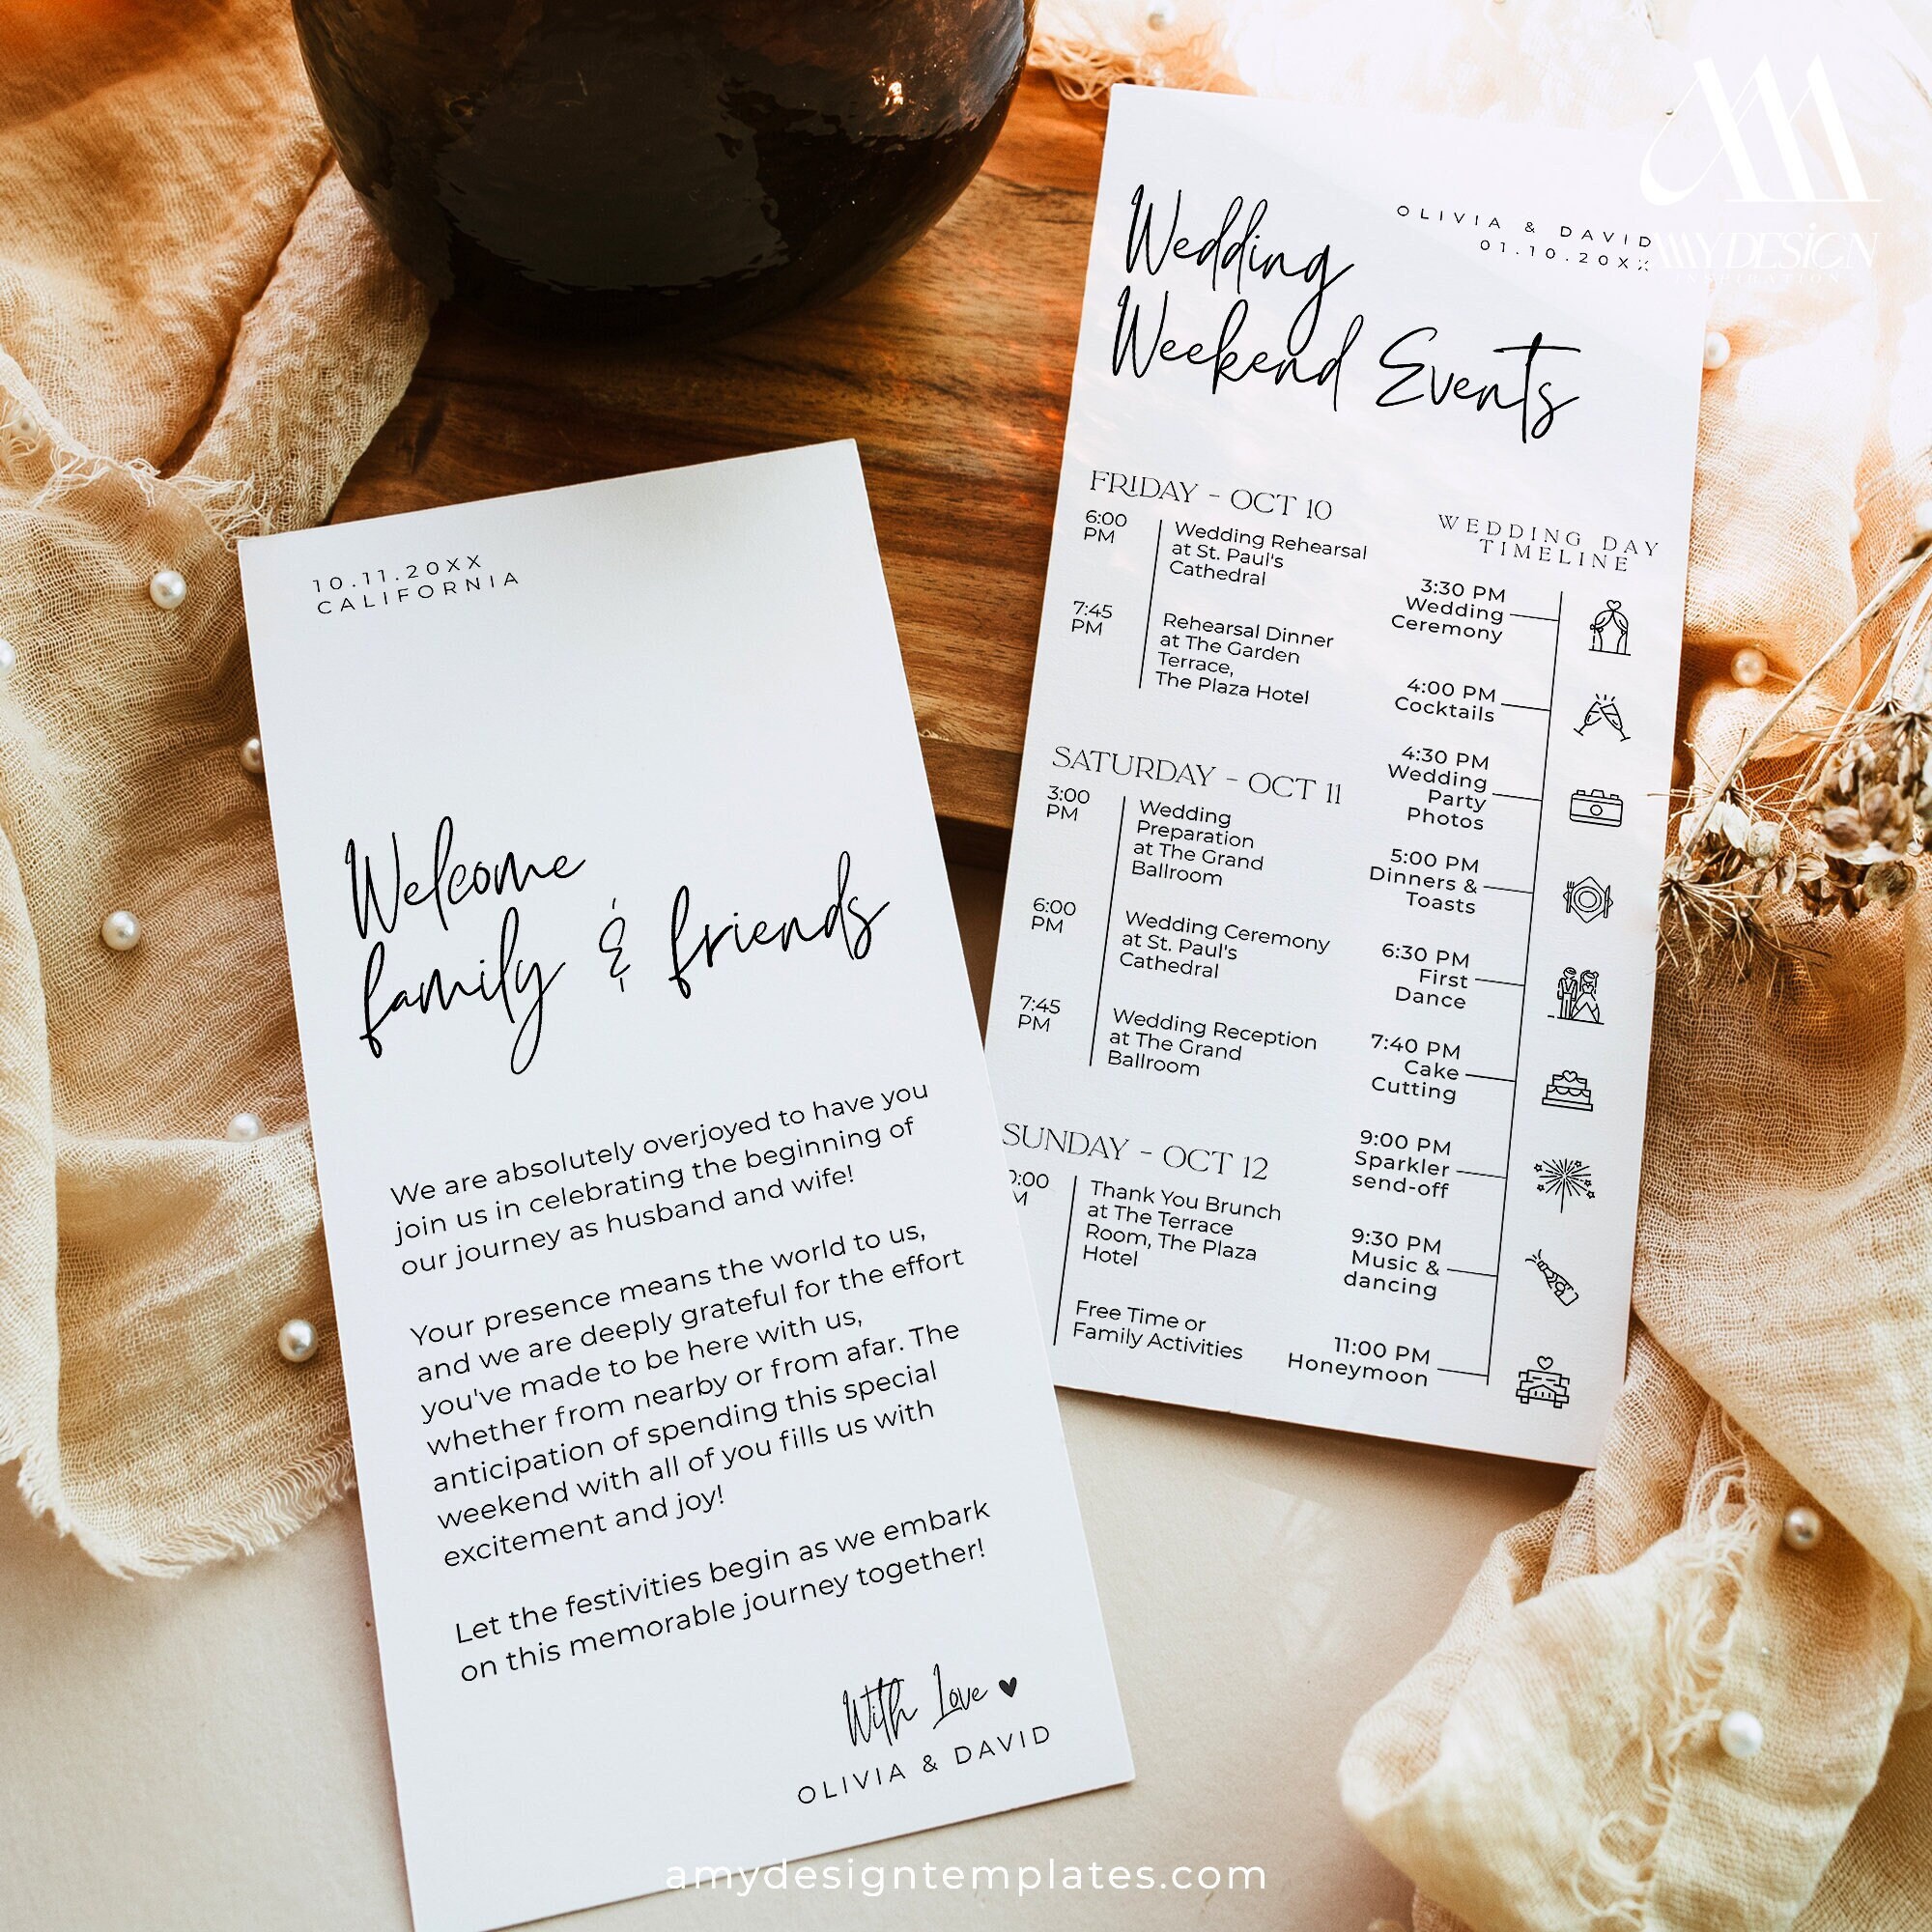 10.11.20XX
CALIFORNIA
Welcome
family & friends
We are absolutely overjoyed to have you
join us in celebrating the beginning of
our journey as husband and wife!
Your presence means the world to us,
and we are deeply grateful for the effort
you've made to be here with us,
whether from nearby or from afar. The
anticipation of spending this special
weekend with all of you fills us with
excitement and joy!
Let the festivities begin as we embark
on this memorable journey together!
With Love
OLIVIA & DAVID
OLIVIA & DAVID
01.10.20XX
Wedding
Weekend Events
FRIDAY - OCT 10
6:00
PM
Wedding Rehearsal
at St. Paul's
Cathedral
7:45
PM
Rehearsal Dinner
at The Garden
Terrace,
The Plaza Hotel
SATURDAY - OCT 11
3:00
PM
Wedding
Preparation
at The Grand
Ballroom
6:00
PM
Wedding Ceremony
at St. Paul's
Cathedral
7:45
PM
Wedding Reception
at The Grand
Ballroom
SUNDAY - OCT 12
Thank You Brunch
at The Terrace
Room, The Plaza
Hotel
Free Time or
Family Activities
WEDDING DAY
TIMELINE
3:30 PM
Wedding
Ceremony
4:00 PM
Cocktails
4:30 PM
Wedding
Party
Photos
5:00 PM
Dinners &
Toasts
6:30 PM
First
Dance
7:40 PM
Cake
Cutting
9:00 PM
Sparkler
send-off
9:30 PM
Music &
dancing
11:00 PM
Honeymoon
AMYDESIGN
amydesigntemplates.com